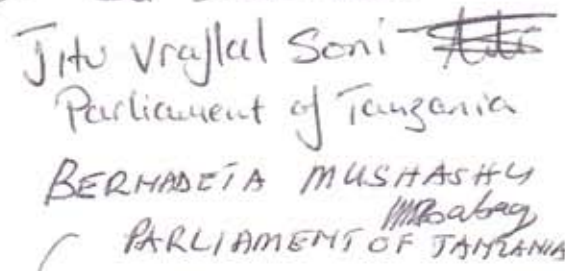 Jitu Vrajlal Soni
Parliament of Tanzania
BERNADETA MUSHASHU
PARLIAMENT OF TANZANIA